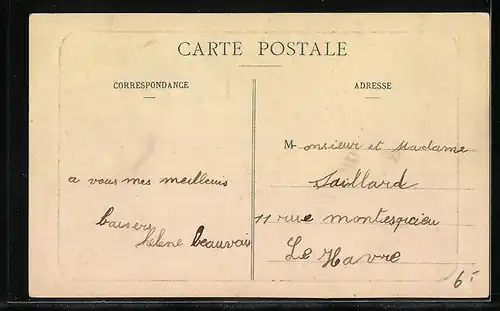 CARTE POSTALE
CORRESPONDANCE
ADRESSE
a vous mes meilleurs
baisers
helene beauvais
Monsieur et Madame
Saillard
11 rue montesquieu
Le Havre
6-